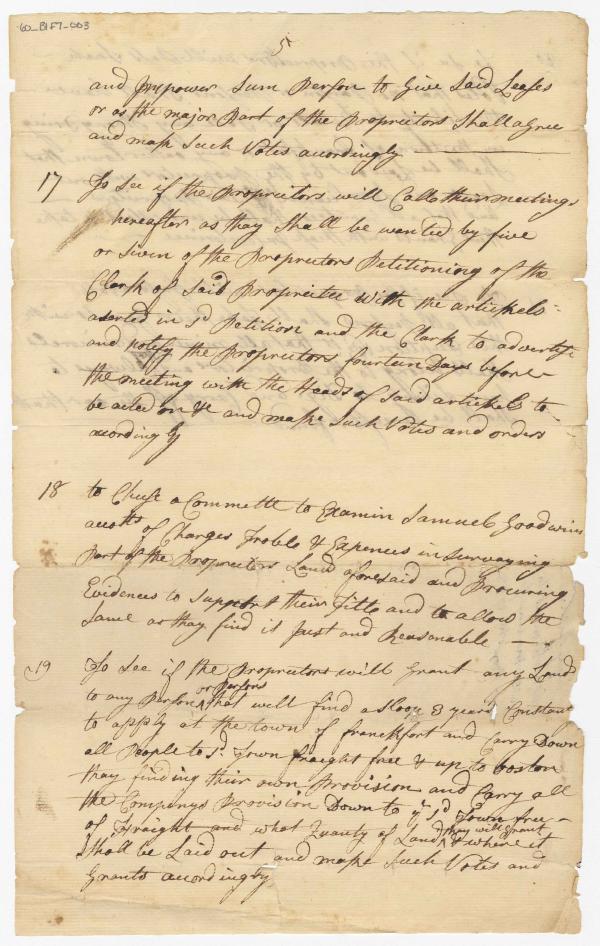 60_B1F7_003
5
and Impower Sum Person to Give Said Leases
or as the major Part of the Proprietors Shall agree
and make Such Votes acordingly
17 To See if the Proprietors will Call their meetings
hereafter as thay Shall be wanted by five
or Siven of the Proprietors Petitioning of the
Clark of Said Proprietee with the artickels
aserted in sd Petition and the Clark to advertise
and notify the Proprietors fourteen Days before
the meeting with the Heads of Said artickels to
be acted on & and make Such Votes and orders
acordingly
18 to Chuse a Committe to Examin Samuel Goodwins
accotts of Charges Troble & Expences in Surveying
Part of the Proprietors Land aforesaid and Procuring
Evidences to Support their Title and to allow the
Same as thay find is Just and Reasonable
19 To See if the Proprietors will Grant any Land
to any Person or Persons that will find a Sloop 3 years Constant
to apply at the town of franckfort and Carry Down
all People to sd Town fraight free & up to boston
thay finding their own Provision and Carry all
the Companys Provision Down to ye sd Town free
of fraight and what Quanty of Land thay will Grant & where it
Shall be Laid out and make Such Votes and
Grants acordingly